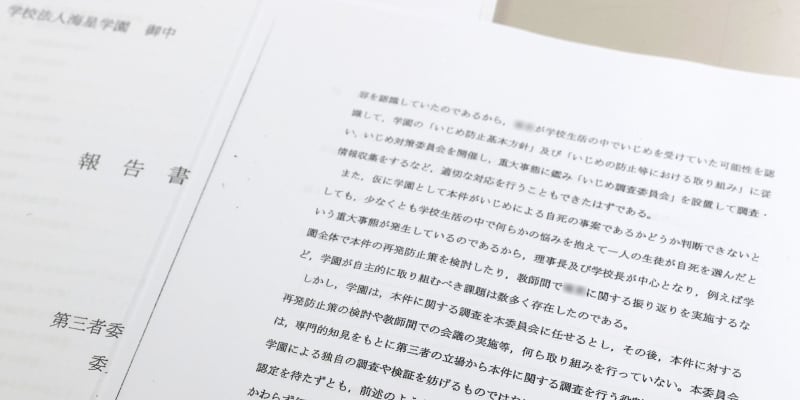 学校法人海星学園　御中
報　告　書
第三者委
委
容を認識していたのであるから，が学校生活の中でいじめを受けていた可能性を認
識して，学園の「いじめ防止基本方針」及び「いじめの防止等における取り組み」に従
い，いじめ対策委員会を開催し，重大事態に鑑み「いじめ調査委員会」を設置して調査・
情報収集をするなど，適切な対応を行うこともできたはずである。
また，仮に学園として本件がいじめによる自死の事案であるかどうか判断できないと
しても，少なくとも学校生活の中で何らかの悩みを抱えて一人の生徒が自死を選んだと
いう重大事態が発生しているのであるから，理事長及び学校長が中心となり，例えば学
園全体で本件の再発防止策を検討したり，教師間でに関する振り返りを実施するな
ど，学園が自主的に取り組むべき課題は数多く存在したのである。
しかし，学園は，本件に関する調査を本委員会に任せるとし，その後，本件に対する
再発防止策の検討や教師間での会議の実施等，何ら取り組みを行っていない。本委員会
は，専門的知見をもとに第三者の立場から本件に関する調査を行う役割
学園による独自の調査や検証を妨げるものではな
認定を待たずとも，前述のよ
かわらず